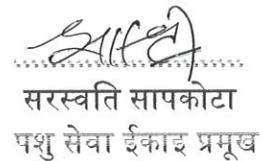 सरस्वति सापकोटा
पशु सेवा ईकाइ प्रमूख